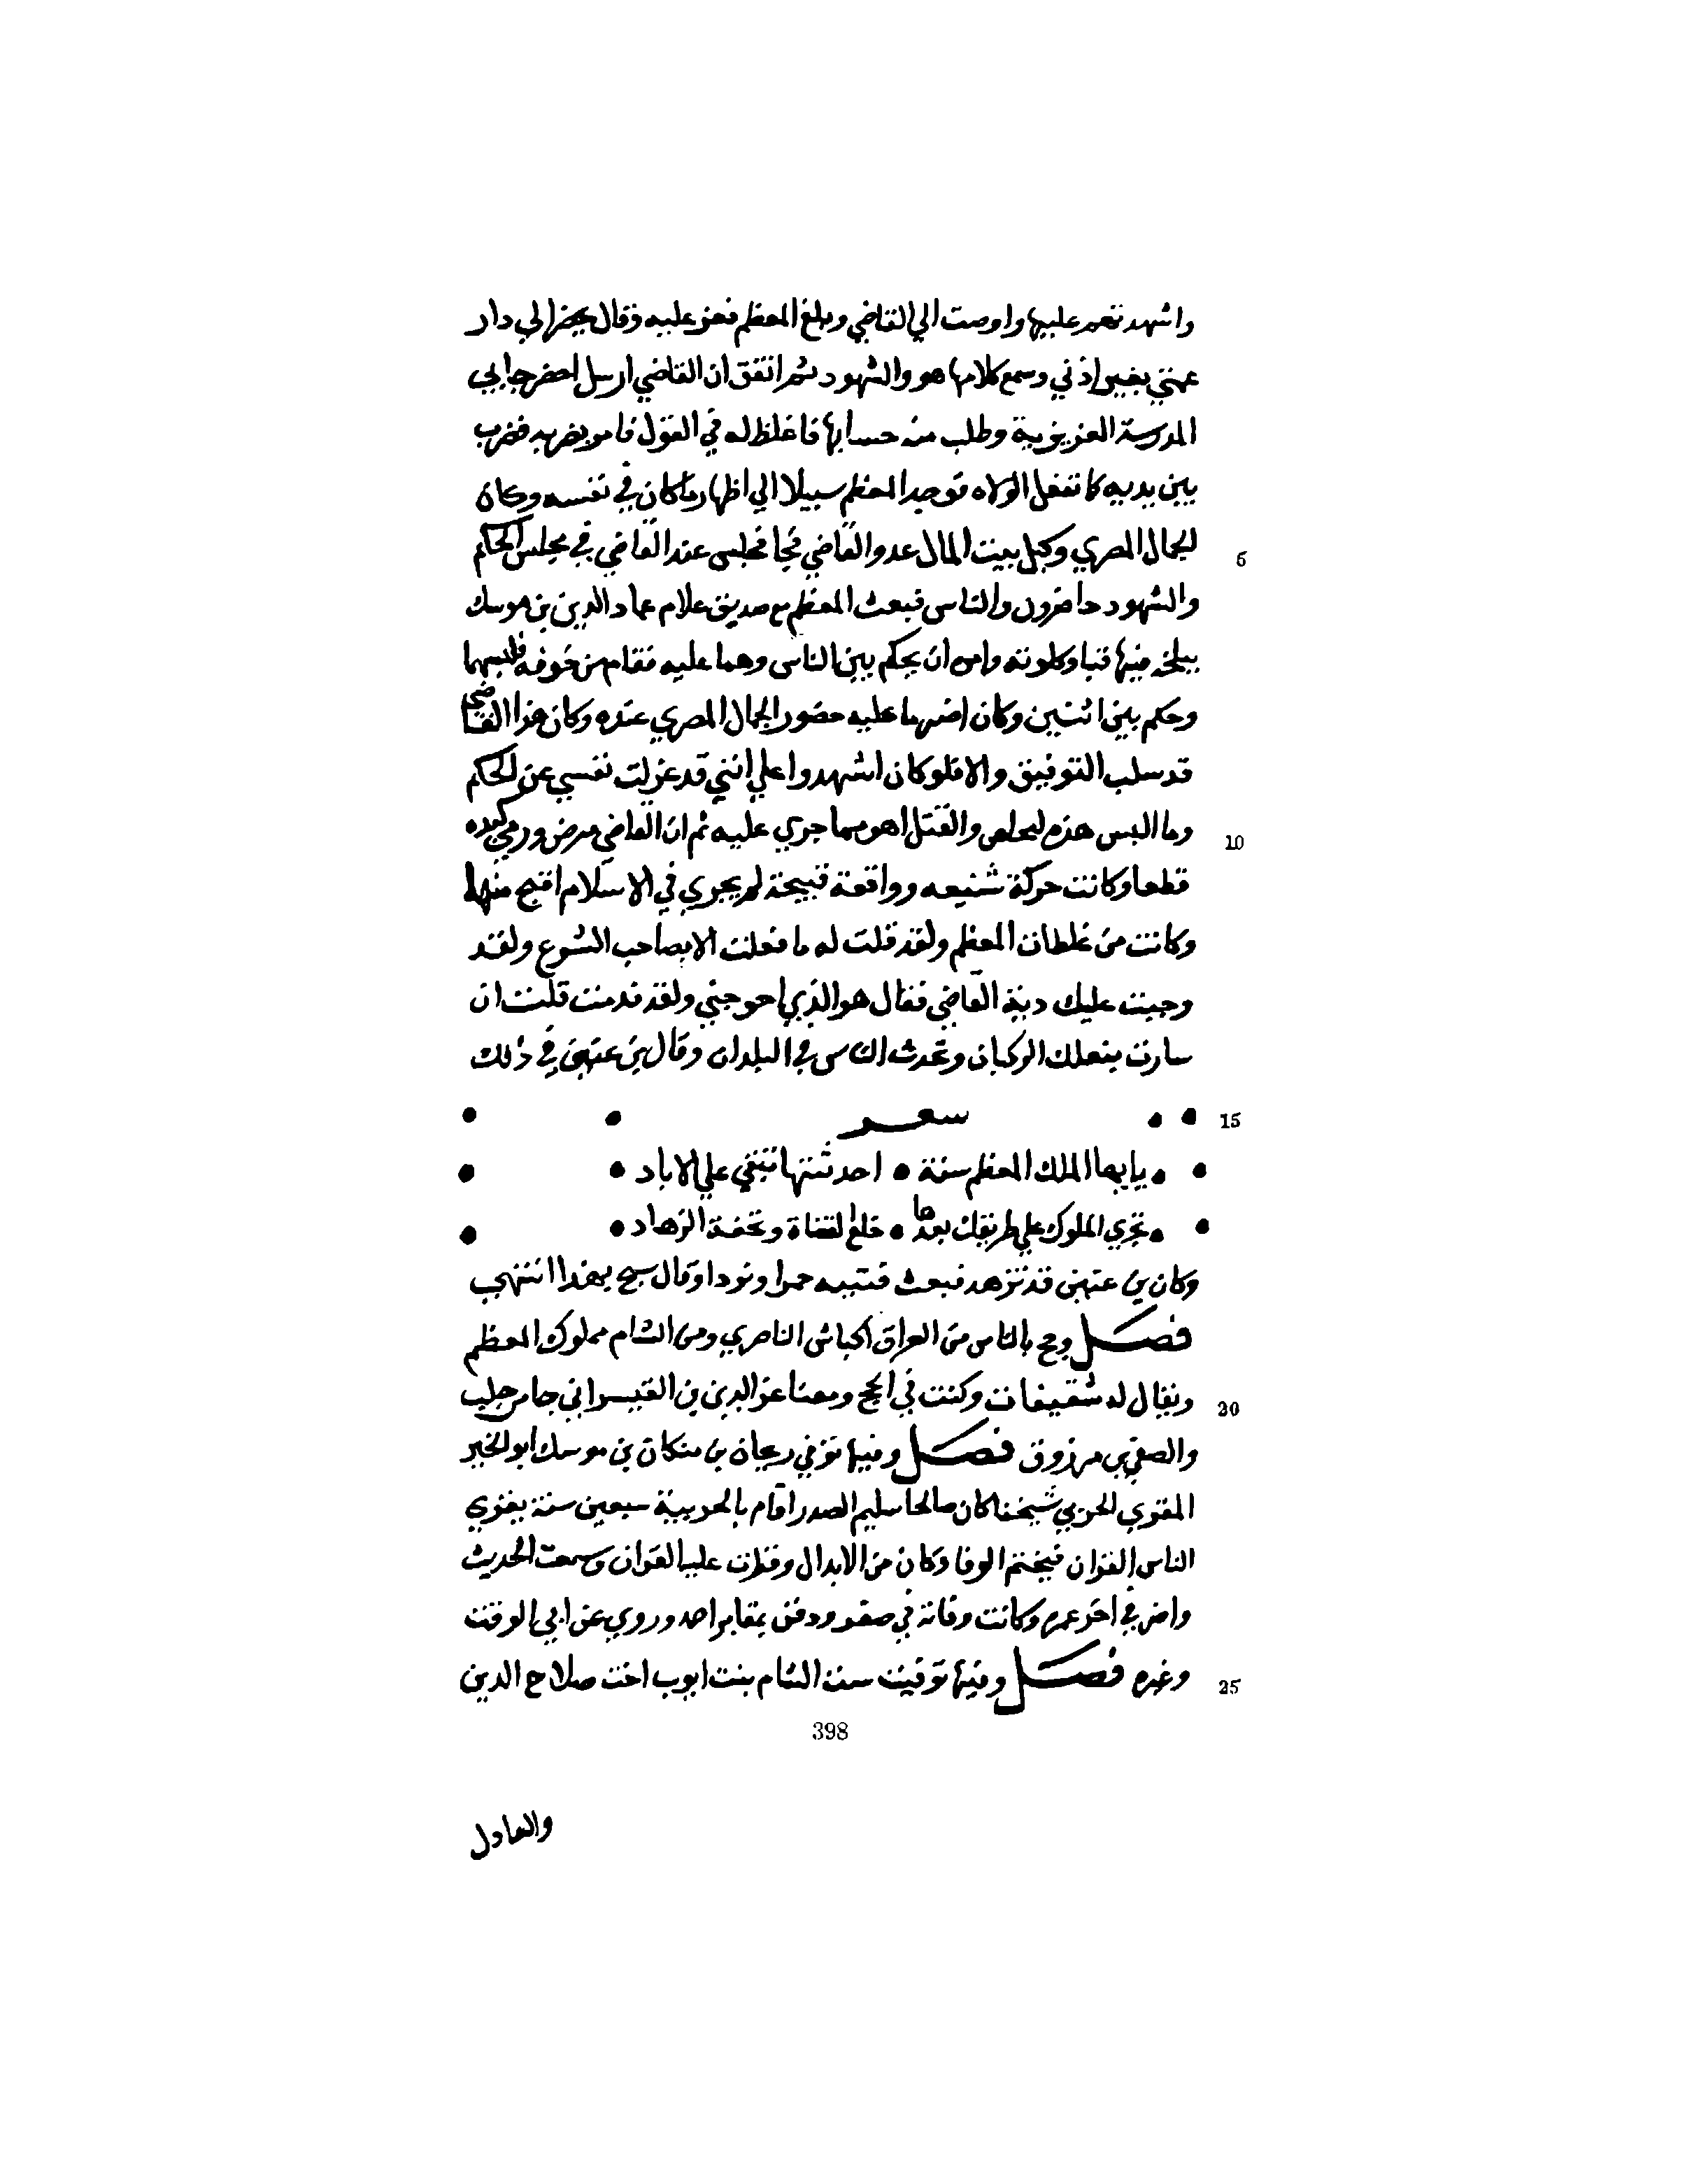 واشهد نهم عليها واوصت الي القاضي وبلغ المعظم فعز عليه وقال يحضر الي دار
عمتي بغير اذني وسمع كلامها هو والشهود ثم اتفق ان القاضي ارسل احضر جابي
المدرسة العزيزية وطلب منه حسابها فاغلظ له في القول فامر بضربه فضرب
بين يديه كما تفعل الولاه فوجد المعظم سبيلا الي اظهار ما كان في نفسه وكان
5 الجمال المصري وكيل بيت المال عدو القاضي فجا فجلس عند القاضي في مجلس الحكم
والشهود حاضرون والناس فبعث المعظم مع صديق غلام عماد الدين بن موسك
فيها قبا وكلوته وامره ان يحكم بين الناس وهما عليه فقام من خوفه فلبسهما
وحكم بين اثنين وكان اضر ما عليه حضور الجمال المصري عنده وكان هذا القاضي
قد سلب التوفيق والا فلو كان اشهدوا علي انني قد عزلت نفسي عن الحكم
10 وما البس هذه والقتل اهو مما جري عليه ثم ان القاضي مرض ورمي كبده
قطعا وكانت حركة شنيعه وواقعة قبيحة لم يجري في الاسلام اقبح منها
وكانت من غلطات المعظم ولقد قلت له ما فعلت الا بصاحب الشرع ولقد
وجبت عليك دية القاضي فقال هو الذي احوجني ولقد ندمت قلت ان
سارت بفعلك الركبان وتحدث الناس في البلدان وقال بن عنين في ذلك
15 شعر
يا ايها الملك المعظم سنة • احدثتها تبقي علي الاباد
تجري الملوك علي طريقك بعدها • خلع القضاة وتحفة الزهاد
وكان بن عنين قد تزهد فبعث قنينه خمرا ونردا وقال سبح بهذا انتهي
فصل وحج بالناس من العراق اقباش الناصري ومن الشام مملوك المعظم
20 ويقال له شقيفات وكنت في الحج ومعنا عز الدين بن القيسراني جا من حلب
والصفي بن مرزوق فصل وفيها توفي ريحان بن تيكان بن موسك ابو الخير
المقري الحربي شيخنا كان صالحا سليم الصدر اقام بالحربية سبعين سنة يقري
الناس القران فيختم الوفا وكان من الابدال وقرات عليه القران وسمعت الحديث
واضر في اخر عمره وكانت وفاته في صفر ودفن بمقابر احمد وروي عن ابي الوقت
25 وغيره فصل وفيها توفيت ست الشام بنت ايوب اخت صلاح الدين
398
والعادل